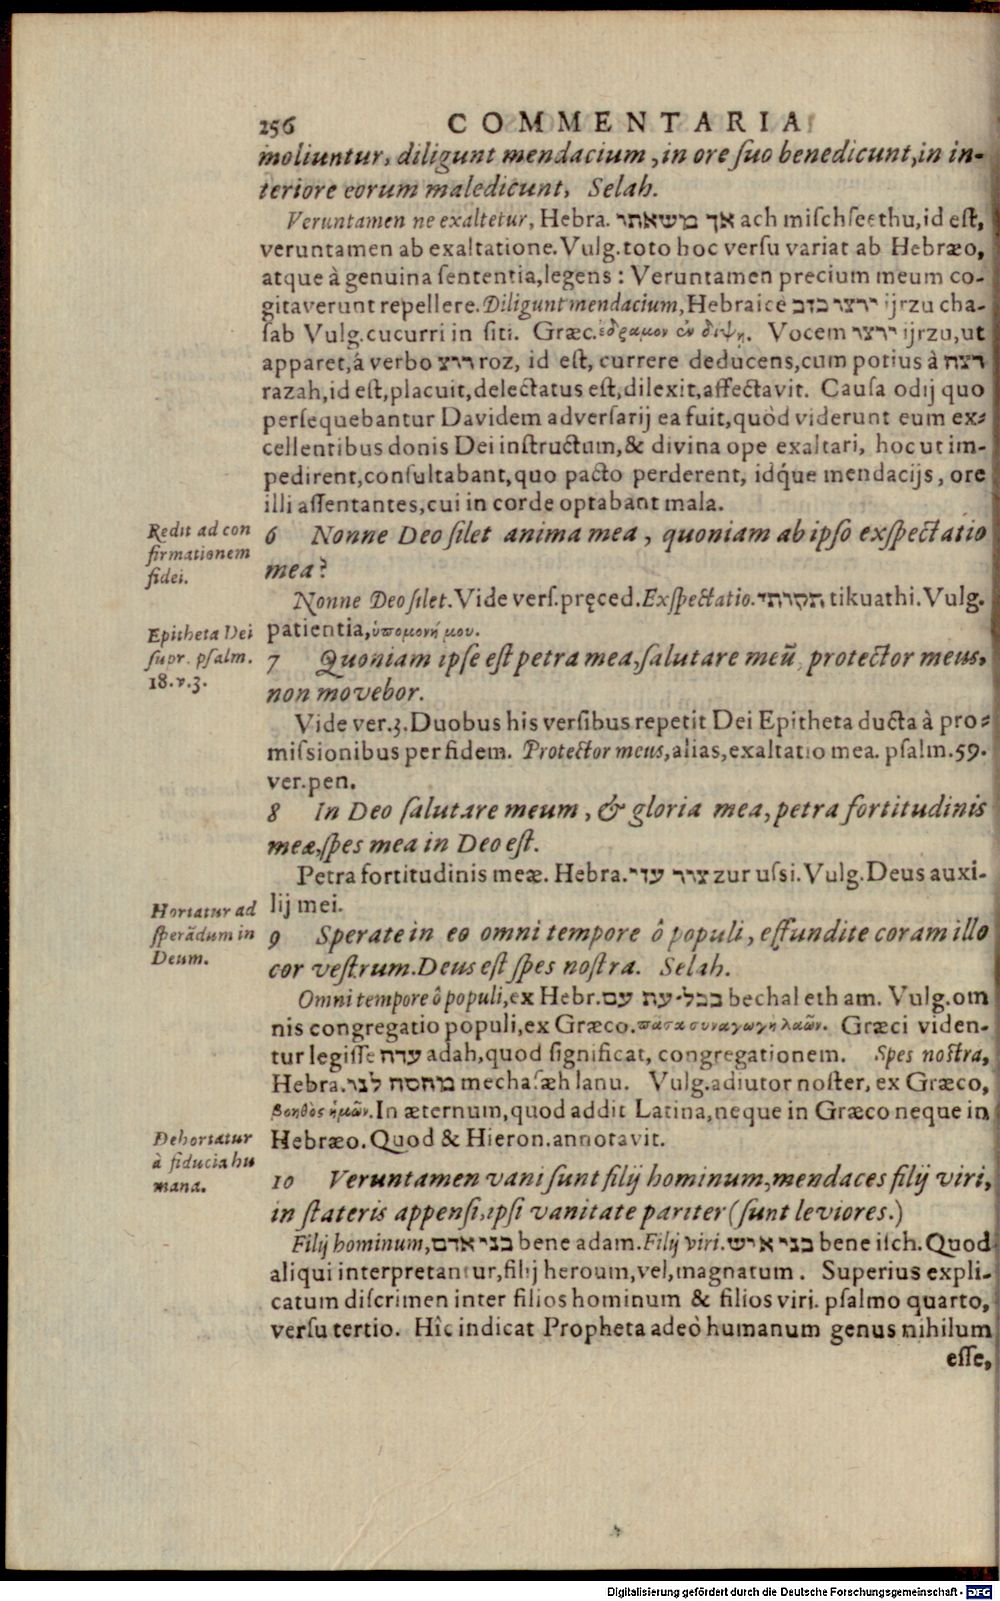 256 COMMENTARIA
moliuntur, diligunt mendacium, in ore ſuo benedicunt, in in-
teriore eorum maledicunt, Selah.
Veruntamen ne exaltetur, Hebra. אך משאתו ach miſchſeethu, id eſt,
veruntamen ab exaltatione. Vulg. toto hoc verſu variat ab Hebræo,
atque à genuina ſententia, legens: Veruntamen precium meum co-
gitaverunt repellere. Diligunt mendacium, Hebraice ירצו כזב ijrzu cha-
ſab Vulg. cucurri in ſiti. Græc. ἔδραμον ἐν δίψῃ. Vocem ירצו ijrzu, ut
apparet, á verbo רוץ roz, id eſt, currere deducens, cum potius à רצה
razah, id eſt, placuit, delectatus eſt, dilexit, affectavit. Cauſa odij quo
perſequebantur Davidem adverſarij ea fuit, quòd viderunt eum ex-
cellentibus donis Dei inſtructum, & divina ope exaltari, hoc ut im-
pedirent, conſultabant, quo pacto perderent, idq́ue mendacijs, ore
illi aſſentantes, cui in corde optabant mala.
Redit ad con
firmationem
fidei.
6 Nonne Deo ſilet anima mea, quoniam ab ipſo exſpectatio
mea?
Nonne Deo ſilet. Vide verſ. pręced. Exſpectatio. תקותי tikuathi. Vulg.
patientia, ὑπομονή μου.
Epitheta Dei
ſupr. pſalm.
18. v. 3.
7 Quoniam ipſe eſt petra mea, ſalutare meū, protector meus,
non movebor.
Vide ver. 3. Duobus his verſibus repetit Dei Epitheta ducta à pro-
miſsionibus per fidem. Protector meus, alias, exaltatio mea. pſalm. 59.
ver. pen.
8 In Deo ſalutare meum, & gloria mea, petra fortitudinis
meæ, ſpes mea in Deo eſt.
Petra fortitudinis meæ. Hebra. צור עזי zur uſsi. Vulg. Deus auxi-
lij mei.
Hortatur ad
ſperādum in
Deum.
9 Sperate in eo omni tempore ô populi, effundite coram illo
cor veſtrum. Deus eſt ſpes noſtra. Selah.
Omni tempore ô populi, ex Hebr. בכל־עת עם bechal eth am. Vulg. om
nis congregatio populi, ex Græco. πᾶσα συναγωγὴ λαῶν. Græci viden-
tur legiſſe עדה adah, quod ſignificat, congregationem. Spes noſtra,
Hebra. מחסה לנו mechaſæh lanu. Vulg. adiutor noſter, ex Græco,
βοηθὸς ἡμῶν. In æternum, quod addit Latina, neque in Græco neque in
Hebræo. Quod & Hieron. annotavit.
Dehortatur
à fiducia hu
mana.
10 Veruntamen vani ſunt filij hominum, mendaces filij viri,
in ſtateris appenſi, ipſi vanitate pariter (ſunt leviores.)
Filij hominum, בני אדם bene adam. Filij viri. בני איש bene iſch. Quod
aliqui interpretantur, filij heroum, vel, magnatum. Superius expli-
catum diſcrimen inter filios hominum & filios viri. pſalmo quarto,
verſu tertio. Hîc indicat Propheta adeò humanum genus nihilum
eſſe,
Digitalisierung gefördert durch die Deutsche Forschungsgemeinschaft - DFG